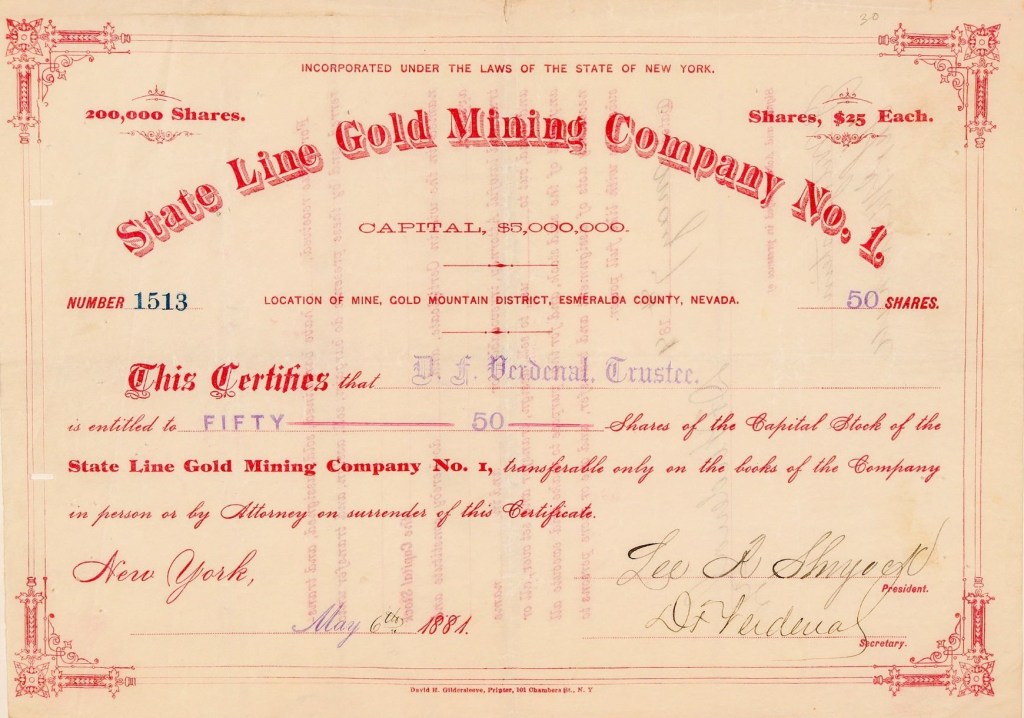 30
INCORPORATED UNDER THE LAWS OF THE STATE OF NEW YORK.
200,000 Shares.
Shares, $25 Each.
State Line Gold Mining Company No. 1,
CAPITAL, $5,000,000.
NUMBER 1513
LOCATION OF MINE, GOLD MOUNTAIN DISTRICT, ESMERALDA COUNTY, NEVADA.
50 SHARES.
This Certifies that D. F. Verdenal, Trustee.
is entitled to FIFTY 50 Shares of the Capital Stock of the
State Line Gold Mining Company No. 1, transferable only on the books of the Company
in person or by Attorney on surrender of this Certificate.
New York,
Lee R Shryock
President.
May 6th 1881.
D F Verdenal
Secretary.
David H. Gildersleeve, Printer, 101 Chambers St., N. Y